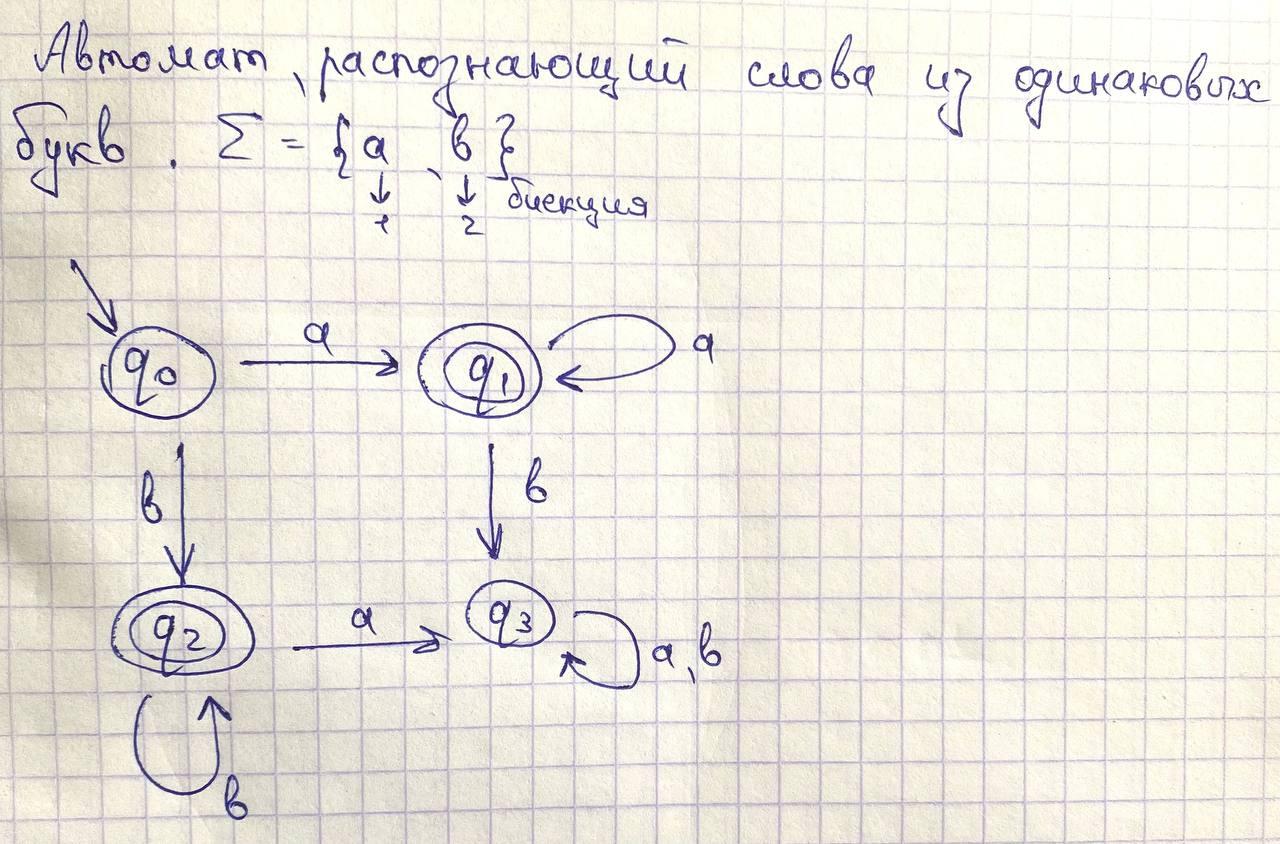 Автомат, распознающий слова из одинаковых
букв. Σ = {a, в}
↓ ↓ биекция
1 2
a
q₀ q₁ a
в в
a
q₂ q₃ a, в
в